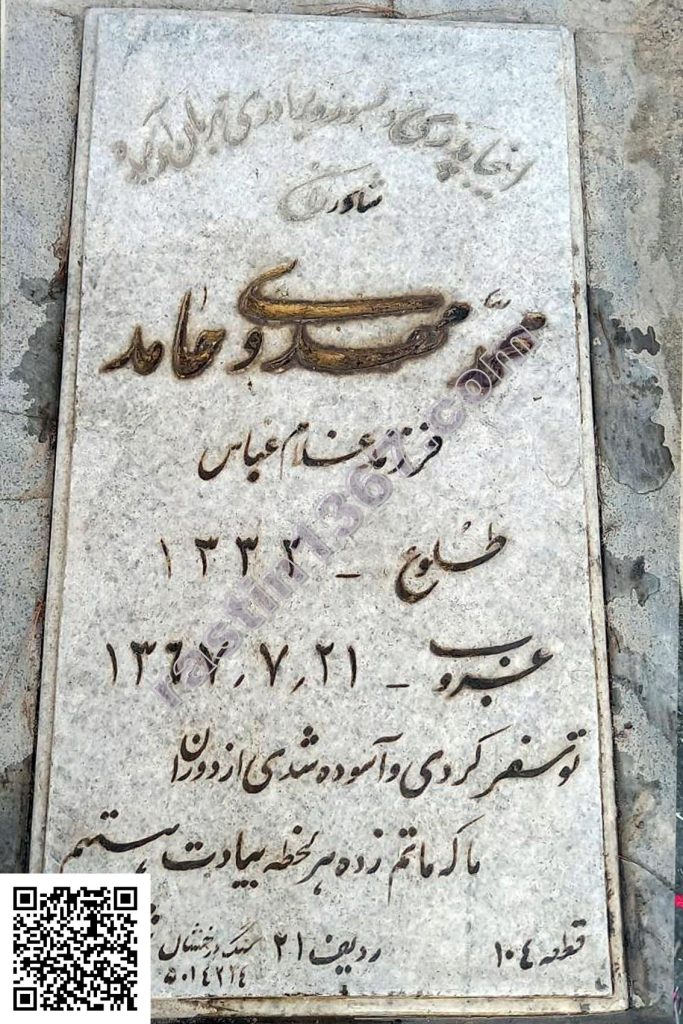 اینجا پدری دلسوز و برادری مهربان آرمید
شادروان
محمد مهدوی حامد
فرزند غلام عباس
طلوع - ۱۳۳۲
غروب - ۱۳۶۷٫۷٫۲۱
تو سفر کردی و آسوده شدی از دوران
ما که ماتم زده هر لحظه بیادت هستیم
قطعه ۱۰۴ ردیف ۲۱ سنگ درخشان
۵۰۱۴۲۱۴
rastin1367.com